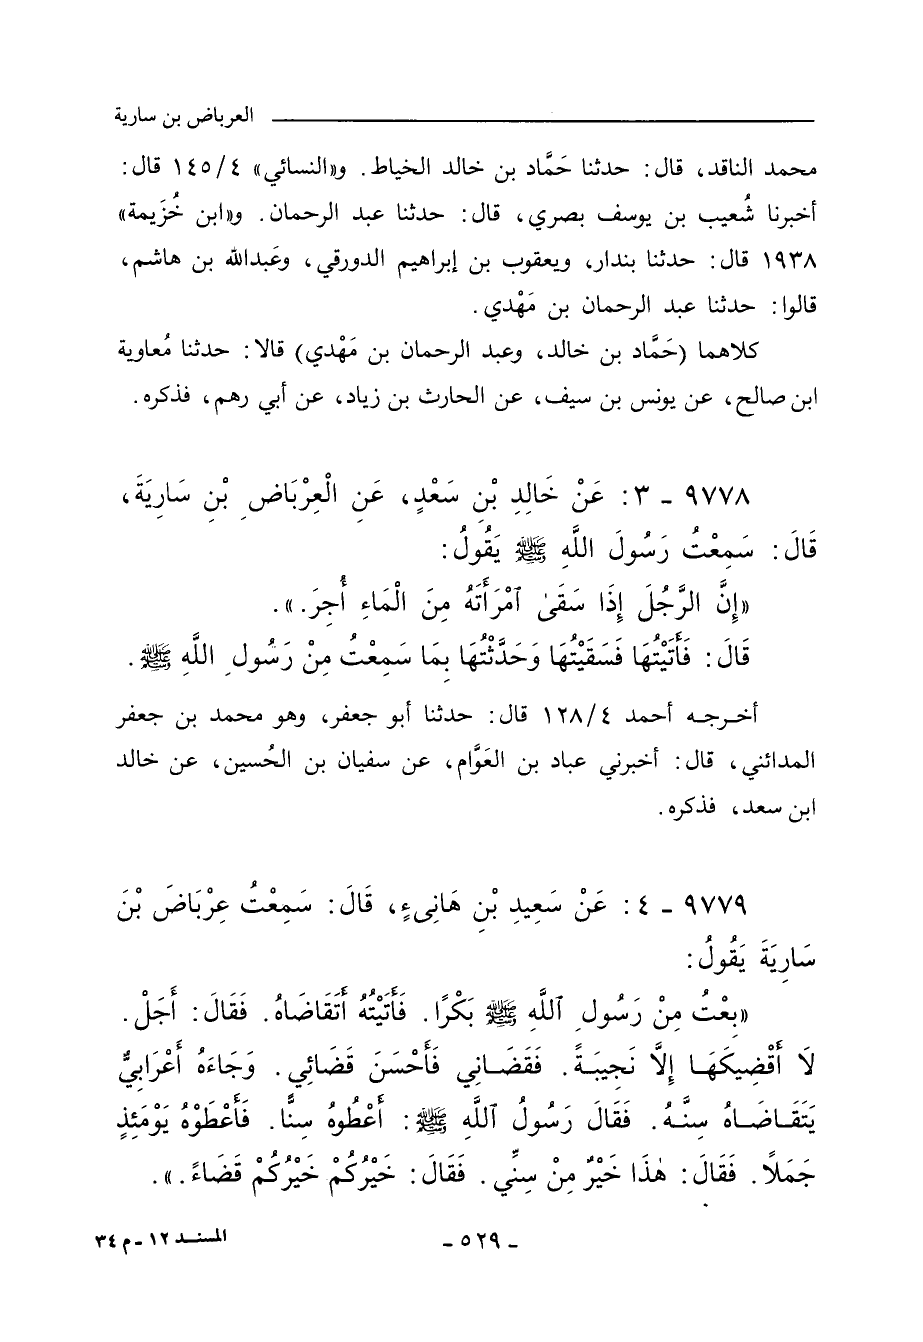 العرباض بن سارية
محمد الناقد، قال: حدثنا حَمَّاد بن خالد الخياط. و«النسائي» ١٤٥/٤ قال:
أخبرنا شُعيب بن يوسف بصري، قال: حدثنا عبد الرحمان. و«ابن خُزَيمة»
١٩٣٨ قال: حدثنا بندار، ويعقوب بن إبراهيم الدورقي، وعَبدالله بن هاشم،
قالوا: حدثنا عبد الرحمان بن مَهْدي.
كلاهما (حَمَّاد بن خالد، وعبد الرحمان بن مَهْدي) قالا: حدثنا مُعاوية
ابن صالح، عن يونس بن سيف، عن الحارث بن زياد، عن أبي رهم، فذكره.
٩٧٧٨ - ٣: عَنْ خَالِدِ بْنِ سَعْدٍ، عَنِ الْعِرْبَاضِ بْنِ سَارِيَةَ،
قَالَ: سَمِعْتُ رَسُولَ اللَّهِ ﷺ يَقُولُ:
«إِنَّ الرَّجُلَ إِذَا سَقَىٰ ٱمْرَأَتَهُ مِنَ الْمَاءِ أُجِرَ.».
قَالَ: فَأَتَيْتُهَا فَسَقَيْتُهَا وَحَدَّثْتُهَا بِمَا سَمِعْتُ مِنْ رَسُولِ اللَّهِ ﷺ.
أخرجه أحمد ١٢٨/٤ قال: حدثنا أبو جعفر، وهو محمد بن جعفر
المدائني، قال: أخبرني عباد بن العَوَّام، عن سفيان بن الحُسين، عن خالد
ابن سعد، فذكره.
٩٧٧٩ - ٤: عَنْ سَعِيدِ بْنِ هَانِىءٍ، قَالَ: سَمِعْتُ عِرْبَاضَ بْنَ
سَارِيَةَ يَقُولُ:
«بِعْتُ مِنْ رَسُولِ ٱللَّهِ ﷺ بَكْرًا. فَأَتَيْتُهُ أَتَقَاضَاهُ. فَقَالَ: أَجَلْ.
لَا أَقْضِيكَهَا إِلَّا نَجِيبَةً. فَقَضَانِي فَأَحْسَنَ قَضَائِي. وَجَاءَهُ أَعْرَابِيٌّ
يَتَقَاضَاهُ سِنَّهُ. فَقَالَ رَسُولُ ٱللَّهِ ﷺ: أَعْطُوهُ سِنًّا. فَأَعْطَوْهُ يَوْمَئِذٍ
جَمَلًا. فَقَالَ: هٰذَا خَيْرٌ مِنْ سِنِّي. فَقَالَ: خَيْرُكُمْ خَيْرُكُمْ قَضَاءً.».
- ٥٢٩ -
المسند ١٢ - م ٣٤